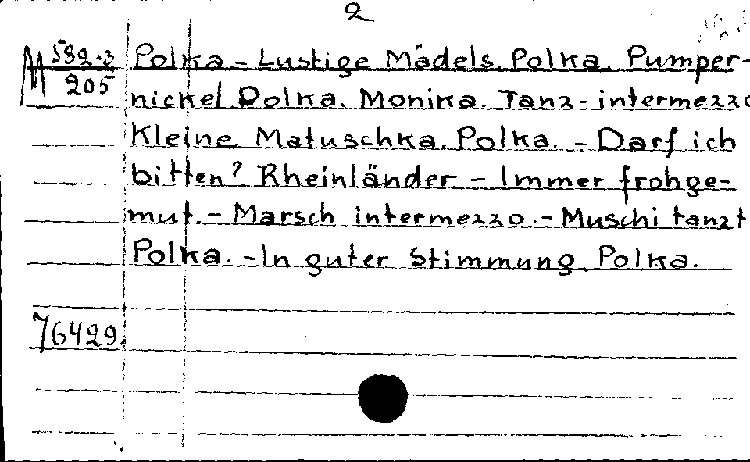 2
M 582-3 Polka - Lustige Mädels. Polka. Pumper-
205 nickel Polka. Monika. Tanz-intermezzo
Kleine Matuschka. Polka. - Darf ich
bitten? Rheinländer - Immer frohge-
mut. - Marsch intermezzo. - Muschi tanzt
Polka. - In guter Stimmung. Polka.
76429.